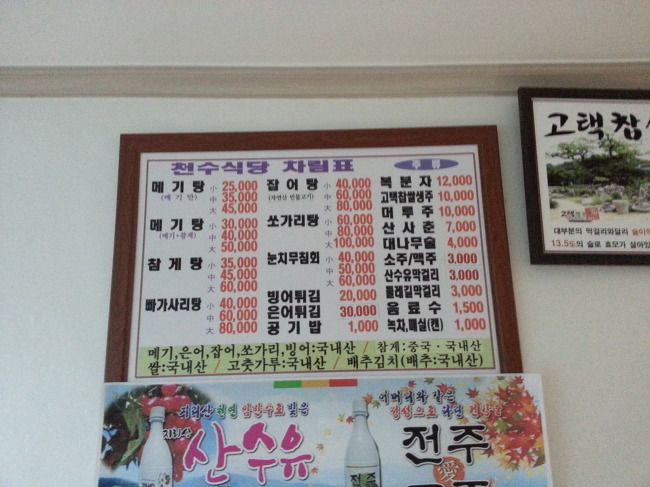 천수식당 차림표
주 류
메 기 탕 小 25,000
(메 기 만) 中 35,000
大 45,000
메 기 탕 小 30,000
(메기+참게) 中 40,000
大 50,000
참 게 탕 小 35,000
中 45,000
大 60,000
빠가사리탕 小 40,000
中 60,000
大 80,000
잡 어 탕 小 40,000
(자연산 민물고기) 中 60,000
大 80,000
쏘가리탕 小 60,000
中 80,000
大 100,000
눈치무침회 小 40,000
中 50,000
大 60,000
빙어튀김 20,000
은어튀김 30,000
공 기 밥 1,000
복 분 자 12,000
고택찹쌀생주 10,000
머 루 주 10,000
산 사 춘 7,000
대나무술 4,000
소주/맥주 3,000
산수유막걸리 3,000
둘레길막걸리 3,000
음 료 수 1,500
녹차,매실(캔) 1,000
메기,은어,잡어,쏘가리,빙어:국내산 / 참게:중국·국내산
쌀:국내산 / 고춧가루:국내산 / 배추김치(배추:국내산)
고택찹
대부분의 막걸리와달리
13.5도의 술로 효모가 살아있
지리산 천연 암반수로 빚은
지리산
산수유
어머니와 같은
정성으로
전주